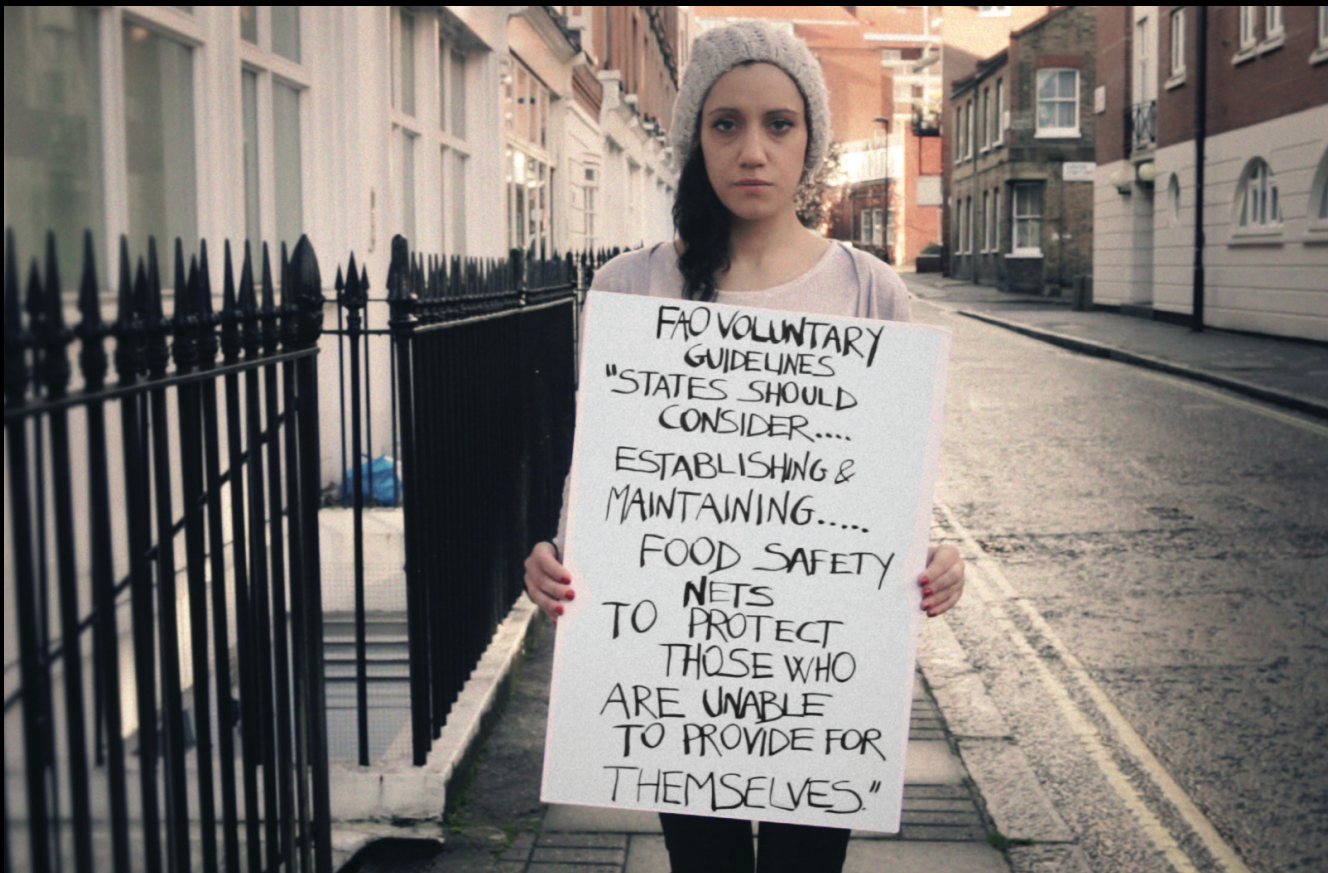 FAO VOLUNTARY
GUIDELINES
"STATES SHOULD
CONSIDER....
ESTABLISHING &
MAINTAINING.....
FOOD SAFETY
NETS
TO PROTECT
THOSE WHO
ARE UNABLE
TO PROVIDE FOR
THEMSELVES."